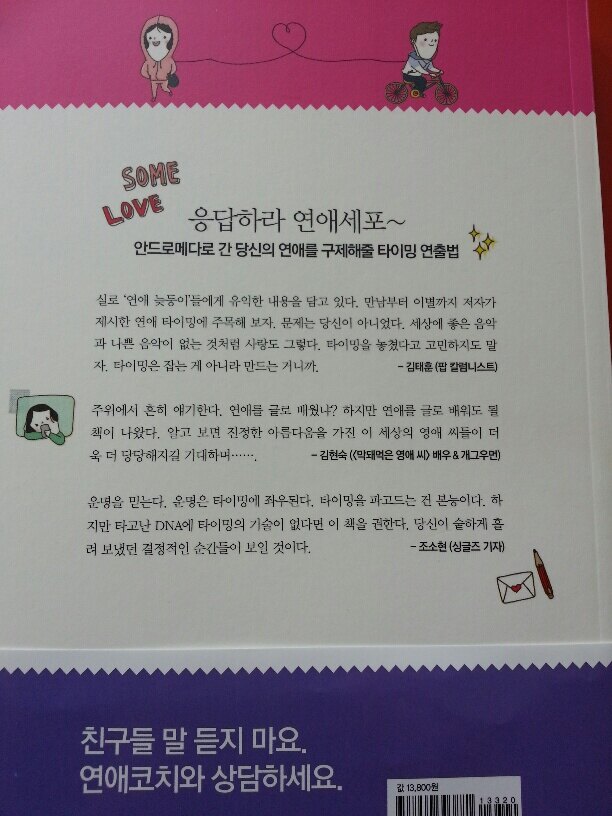 SOME
LOVE
응답하라 연애세포~
안드로메다로 간 당신의 연애를 구제해줄 타이밍 연출법
실로 '연애 늦둥이'들에게 유익한 내용을 담고 있다. 만남부터 이별까지 저자가
제시한 연애 타이밍에 주목해 보자. 문제는 당신이 아니었다. 세상에 좋은 음악
과 나쁜 음악이 없는 것처럼 사랑도 그렇다. 타이밍을 놓쳤다고 고민하지도 말
자. 타이밍은 잡는 게 아니라 만드는 거니까. - 김태훈 (팝 칼럼니스트)
주위에서 흔히 얘기한다. 연애를 글로 배웠냐? 하지만 연애를 글로 배워도 될
책이 나왔다. 알고 보면 진정한 아름다움을 가진 이 세상의 영애 씨들이 더
욱 더 당당해지길 기대하며……. - 김현숙 (〈막돼먹은 영애 씨〉 배우 & 개그우먼)
운명을 믿는다. 운명은 타이밍에 좌우된다. 타이밍을 파고드는 건 본능이다. 하
지만 타고난 DNA에 타이밍의 기술이 없다면 이 책을 권한다. 당신이 숱하게 흘
려 보냈던 결정적인 순간들이 보일 것이다. - 조소현 (싱글즈 기자)
친구들 말 듣지 마요.
연애코치와 상담하세요.
값 13,800원
13320